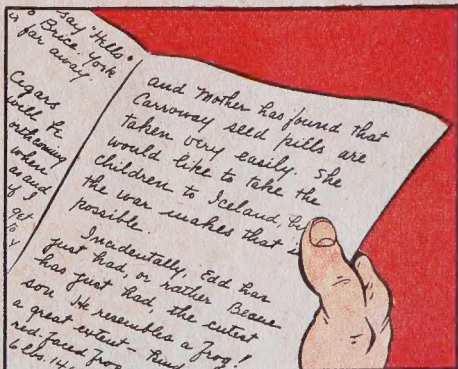 say "Hello"
to Brice. York
is far away.
Cigars
will be
orthcoming
when
as and
if I
get
to
y
and Mother has found that
Carroway seed pills are
taken very easily. She
would like to take the
children to Iceland, bu
the war makes that
possible.
Incidentally, Ead has
just had, or rather
has just had, the cutest
son. He resembles a frog!
a great extent-
red-faced frog
6 lbs. 14